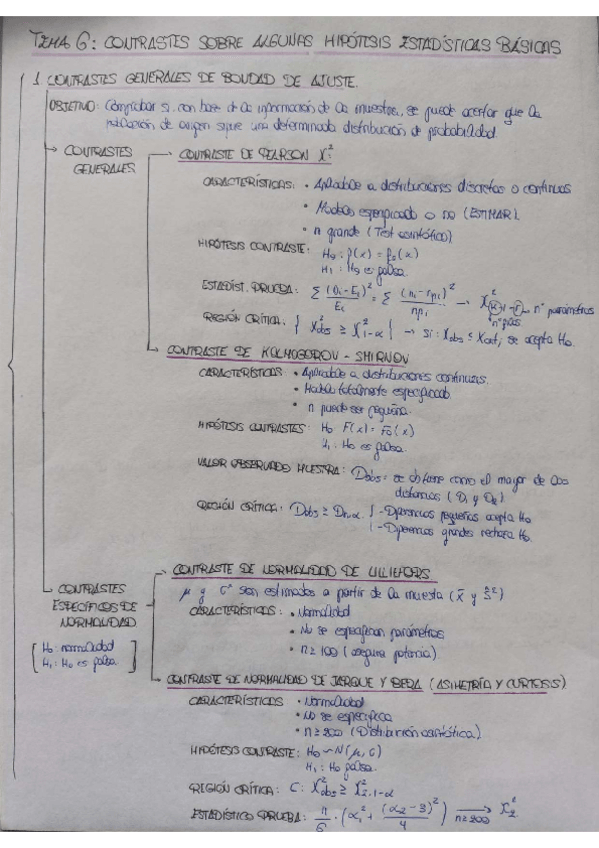 TEMA 6: CONTRASTES SOBRE ALGUNAS HIPÓTESIS ESTADÍSTICAS BÁSICAS
1. CONTRASTES GENERALES DE BONDAD DE AJUSTE.
OBJETIVO: Comprobar si con base de la información de la muestra, se puede aceptar que la
población de origen sigue una determinada distribución de probabilidad.
→ CONTRASTES GENERALES
→ CONTRASTE DE PEARSON X²:
CARACTERÍSTICAS: • Aplicable a distribuciones discretas o continuas
• Modelo especificado o no (ESTIMAR).
• n grande (Test asintótico)
HIPÓTESIS CONTRASTE: H₀: f(x) = f₀(x)
H₁: H₀ es falsa.
ESTADÍST. PRUEBA: Σ (Oi - Ei)² / Ei = Σ (ni - npi)² / npi → X² k-1-r → nº parámetros
REGIÓN CRÍTICA: { X²obs ≥ X²1-α } → Si: Xobs ≤ Xcrit, se acepta H₀.
→ CONTRASTE DE KOLMOGOROV - SMIRNOV
CARACTERÍSTICAS: • Aplicable a distribuciones continuas.
• Modelo totalmente especificado.
• n puede ser pequeña.
HIPÓTESIS CONTRASTES: H₀ F(x) = F₀(x)
H₁: H₀ es falsa.
VALOR OBSERVADO MUESTRA: Dobs = se obtiene como el mayor de las
distancias (D₁ y D₂)
REGIÓN CRÍTICA: Dobs ≥ Dn,α { - Diferencias pequeñas acepta H₀
- Diferencias grandes rechaza H₀.
→ CONTRASTES ESPECÍFICOS DE NORMALIDAD
[ H₀: normalidad
H₁: H₀ es falsa. ]
→ CONTRASTE DE NORMALIDAD DE LILLIEFORS.
μ y σ² son estimados a partir de la muestra (x̄ y Ŝ²)
CARACTERÍSTICAS: • Normalidad
• No se especifican parámetros
• n ≥ 100 (asegura potencia)
→ CONTRASTE DE NORMALIDAD DE JARQUE Y BERA (ASIMETRÍA Y CURTOSIS)
CARACTERÍSTICAS • Normalidad
• No se especifica
• n ≥ 200 (Distribución asintótica)
HIPÓTESIS CONTRASTE: H₀ ~ N(μ, σ)
H₁: H₀ falsa.
REGIÓN CRÍTICA: C: X²obs ≥ X²2,1-α
ESTADÍSTICO PRUEBA: n/6 · (α₁² + (α₂ - 3)² / 4) → n ≥ 200 X²₂